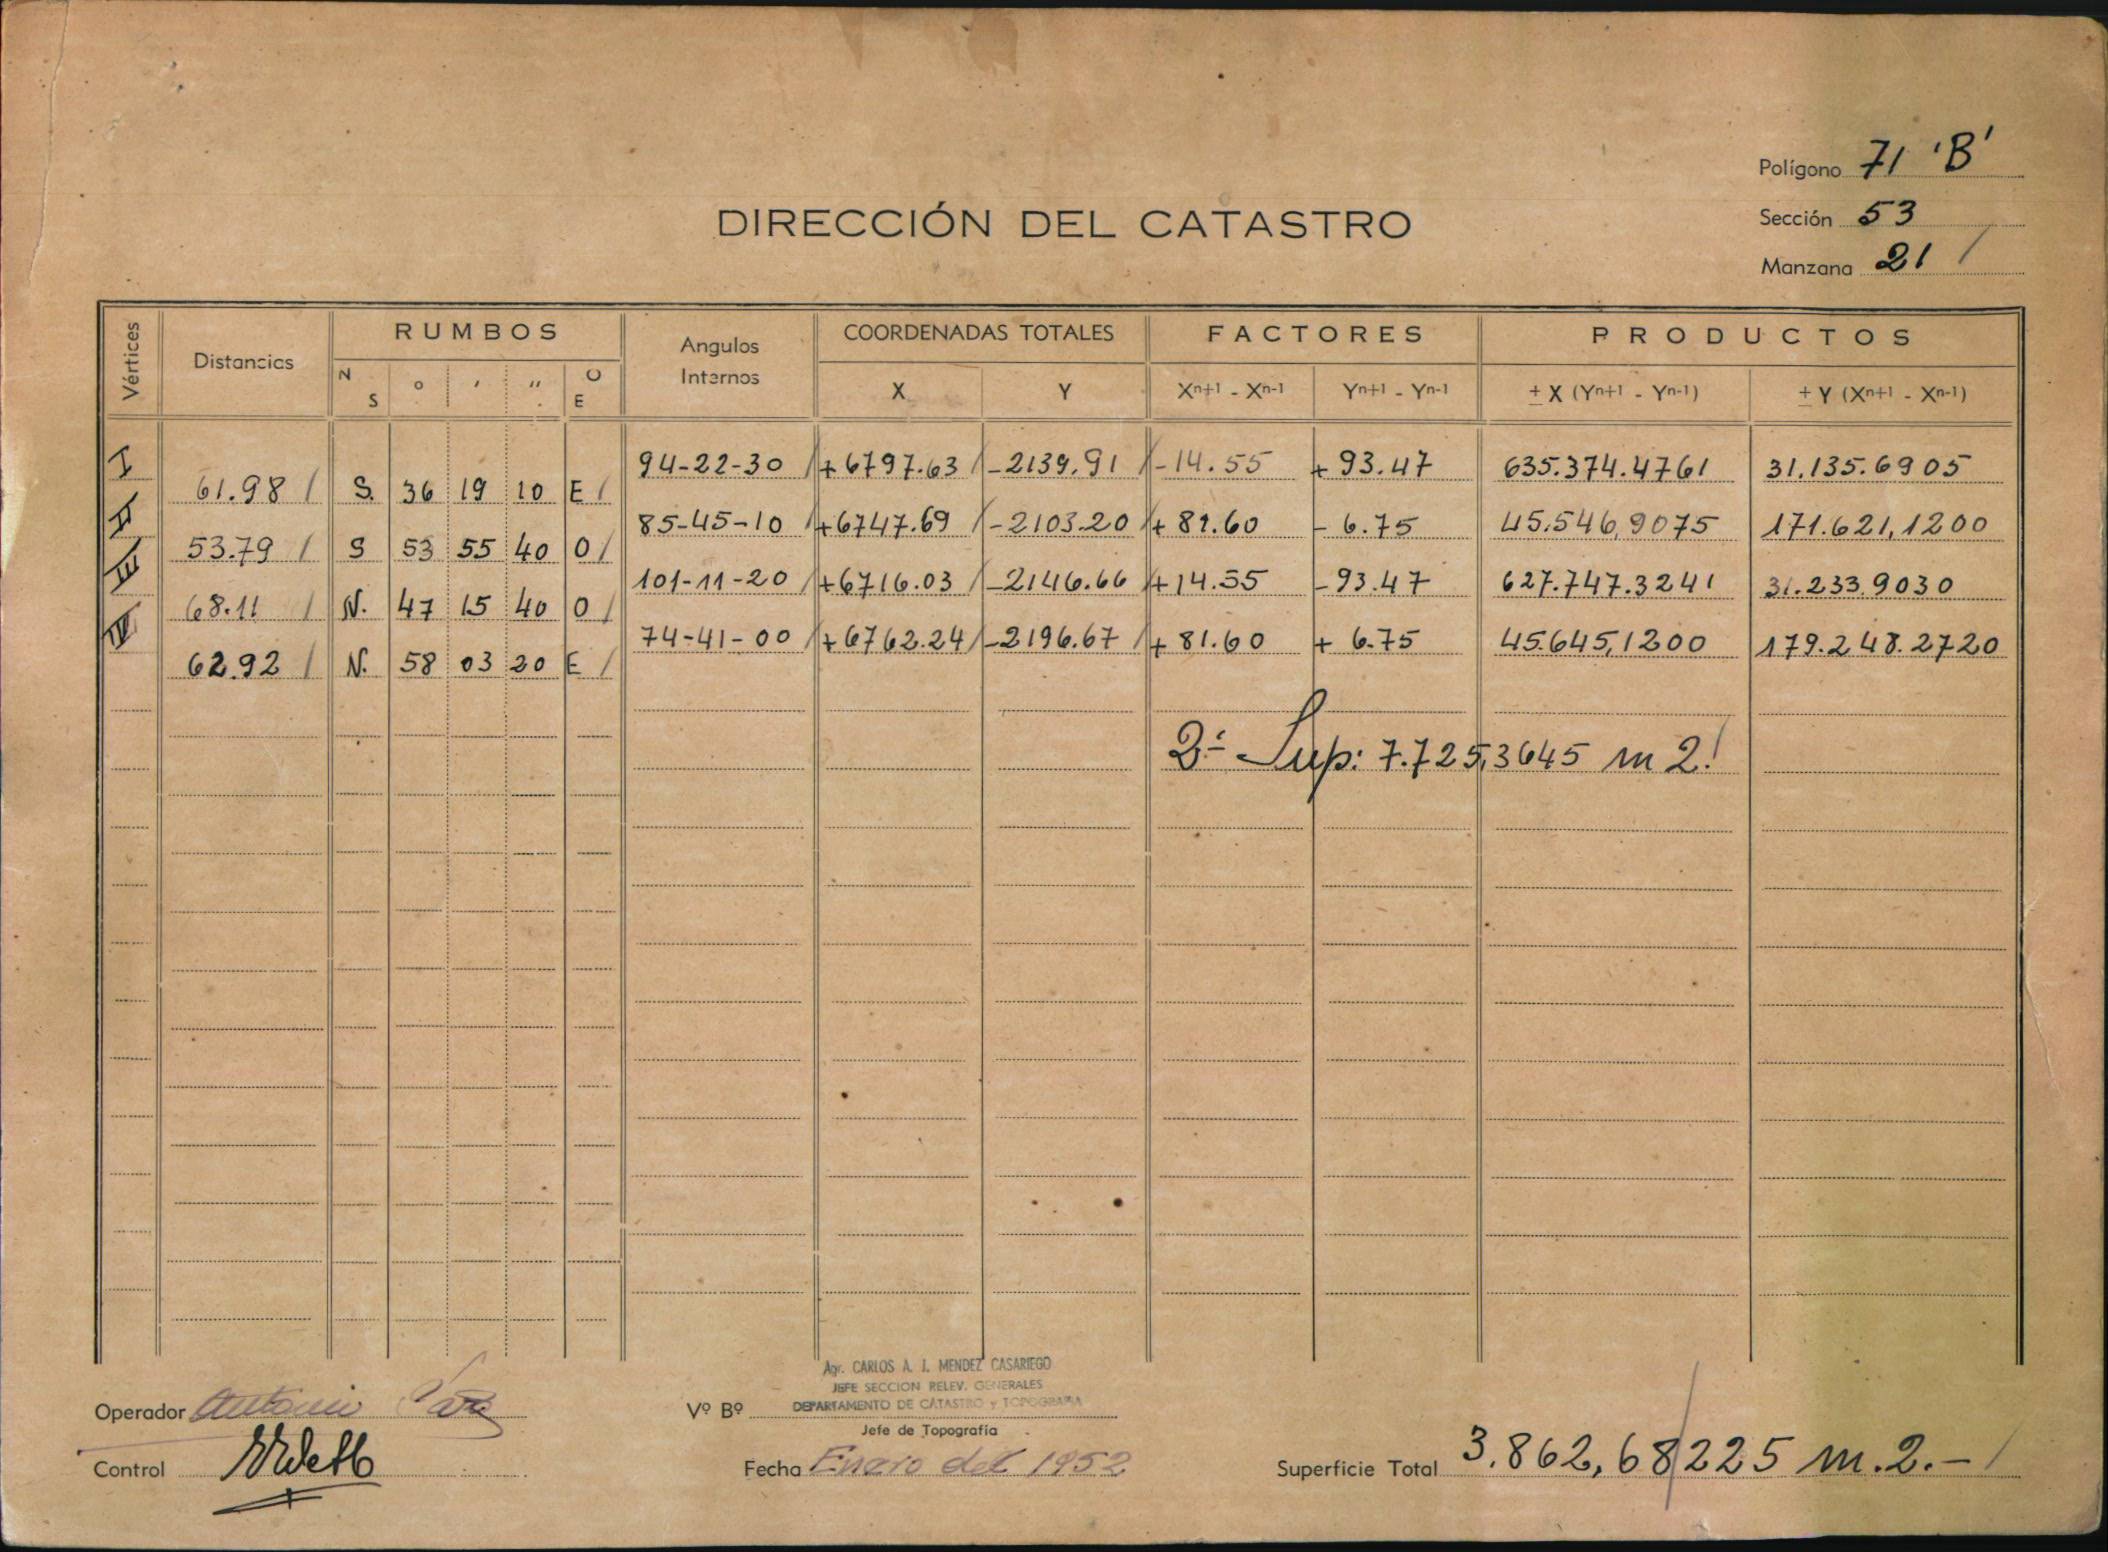 Polígono 71 'B'
Sección 53
Manzana 21 /
DIRECCIÓN DEL CATASTRO
Vértices Distancias RUMBOS Angulos Internos COORDENADAS TOTALES FACTORES PRODUCTOS
N S ° ' " O E X Y Xⁿ⁺¹ - Xⁿ⁻¹ Yⁿ⁺¹ - Yⁿ⁻¹ ± X (Yⁿ⁺¹ - Yⁿ⁻¹) ± Y (Xⁿ⁺¹ - Xⁿ⁻¹)
I 94-22-30 / +6797.63 / -2139.91 / -14.55 +93.47 635.374.4761 31.135.6905
61.98 / S. 36 19 10 E /
II 85-45-10 / +6747.69 / -2103.20 / +81.60 - 6.75 45.546,9075 171.621,1200
53.79 / S 53 55 40 O /
III 101-11-20 / +6716.03 / -2146.66 / +14.55 -93.47 627.747.3241 31.233.9030
68.11 / N. 47 15 40 O /
IV 74-41-00 / +6762.24 / -2196.67 / + 81.60 + 6.75 45.645,1200 179.248.2720
62.92 / N. 58 03 20 E /
2.- Sup: 7.725,3645 m 2. /
Agr. CARLOS A. J. MENDEZ CASARIEGO
JEFE SECCION RELEV. GENERALES
Operador Antonio Vº Bº DEPARTAMENTO DE CATASTRO y TOPOGRAFIA
Jefe de Topografía
Control Fecha Enero del 1952 Superficie Total 3.862,68/225 m.2.- /